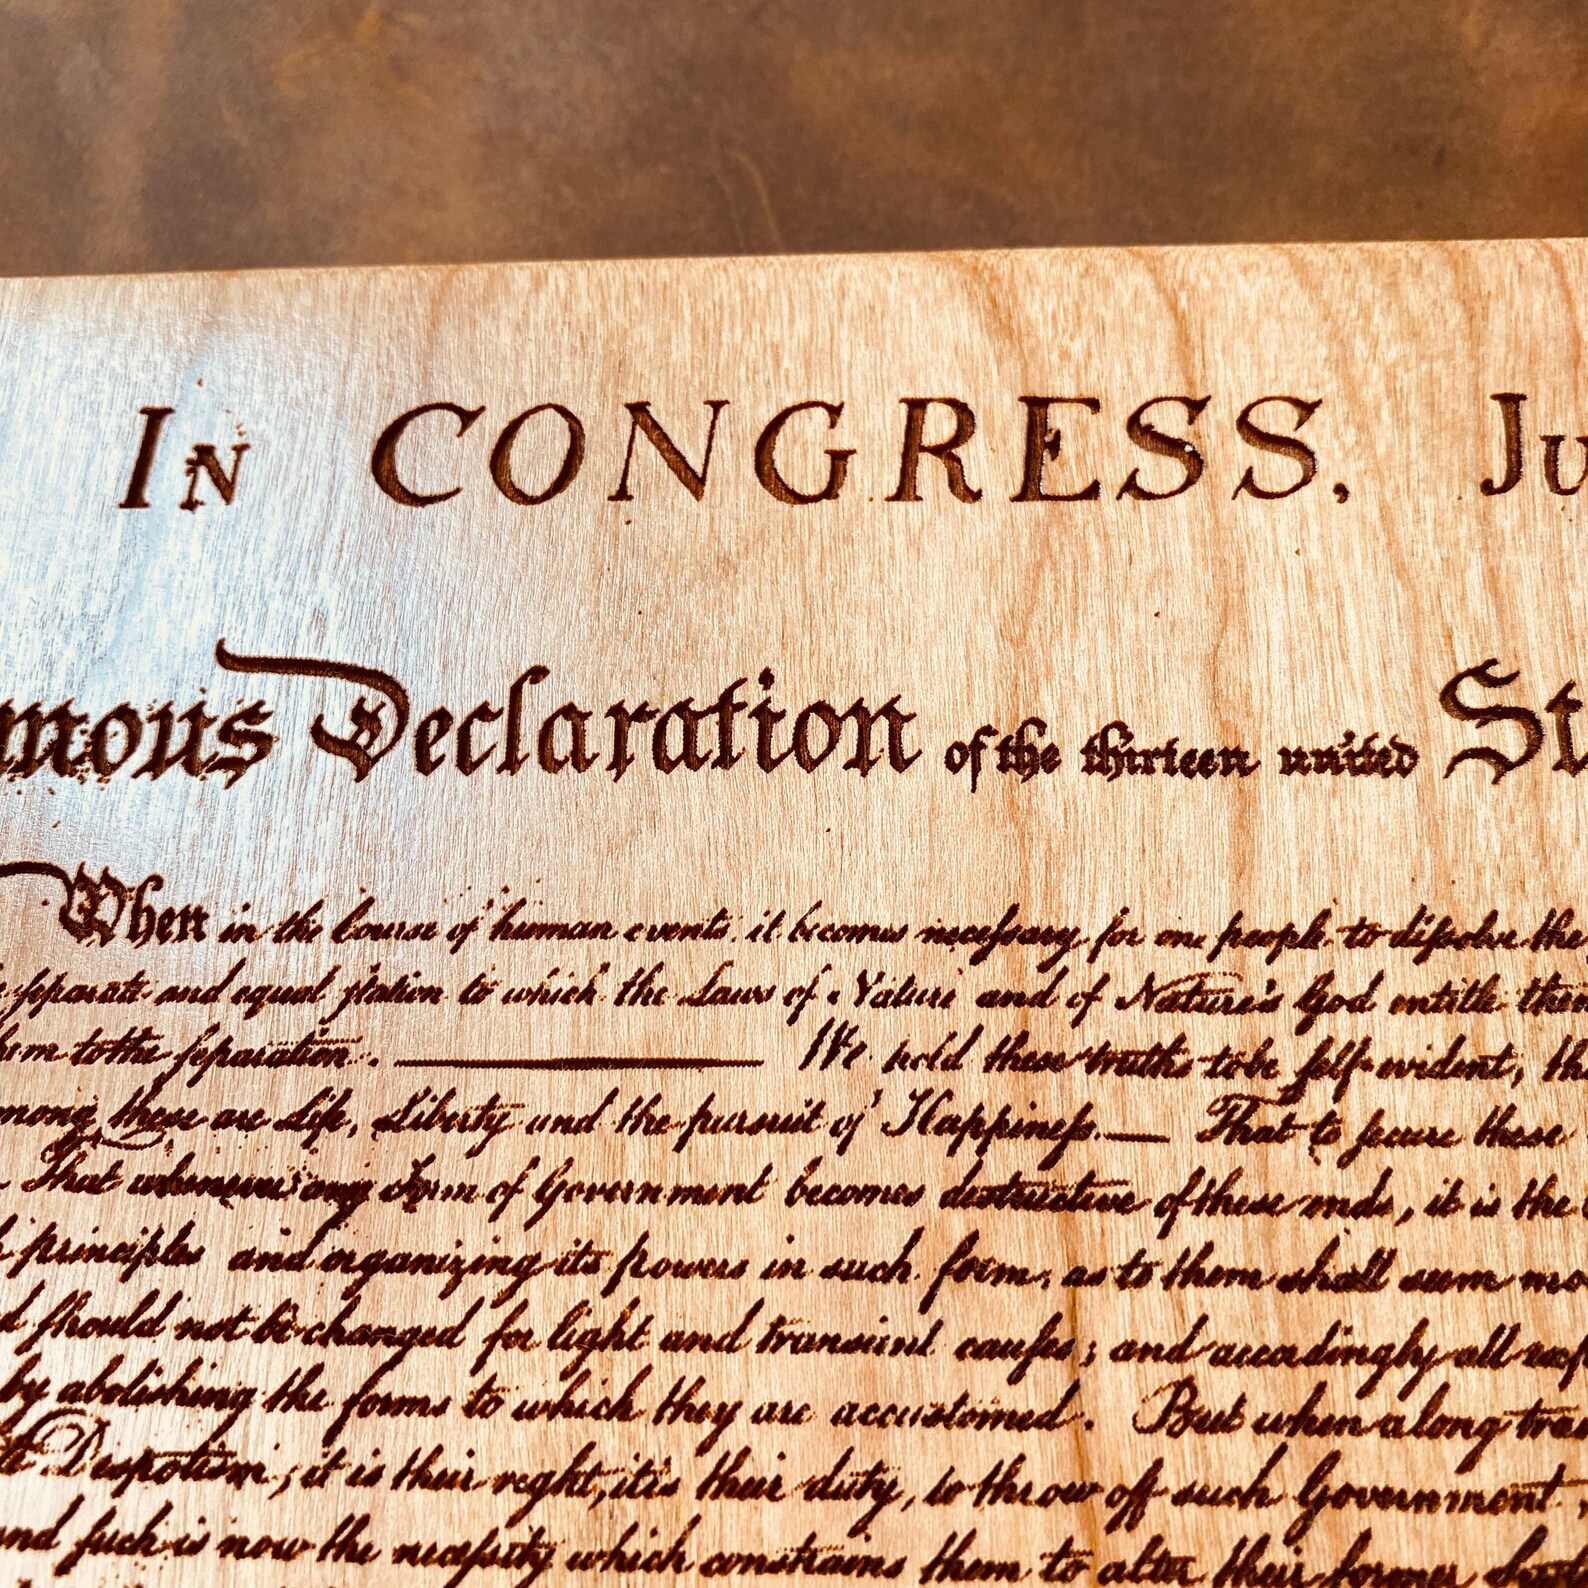 In CONGRESS, Ju
mous Declaration of the thirteen united St
When in the Course of human events, it becomes necessary for one people to dissolve the
separate and equal station to which the Laws of Nature and of Nature's God entitle them
them to the separation. We hold these truths to be self-evident, tha
among these are Life, Liberty and the pursuit of Happiness.— That to secure these
That whenever any Form of Government becomes destructive of these ends, it is the
principles and organizing its powers in such form, as to them shall seem mo
should not be changed for light and transient causes; and accordingly all exp
by abolishing the forms to which they are accustomed. But when a long trai
Despotism, it is their right, it is their duty, to throw off such Government,
and such is now the necessity which constrains them to alter their former Syste